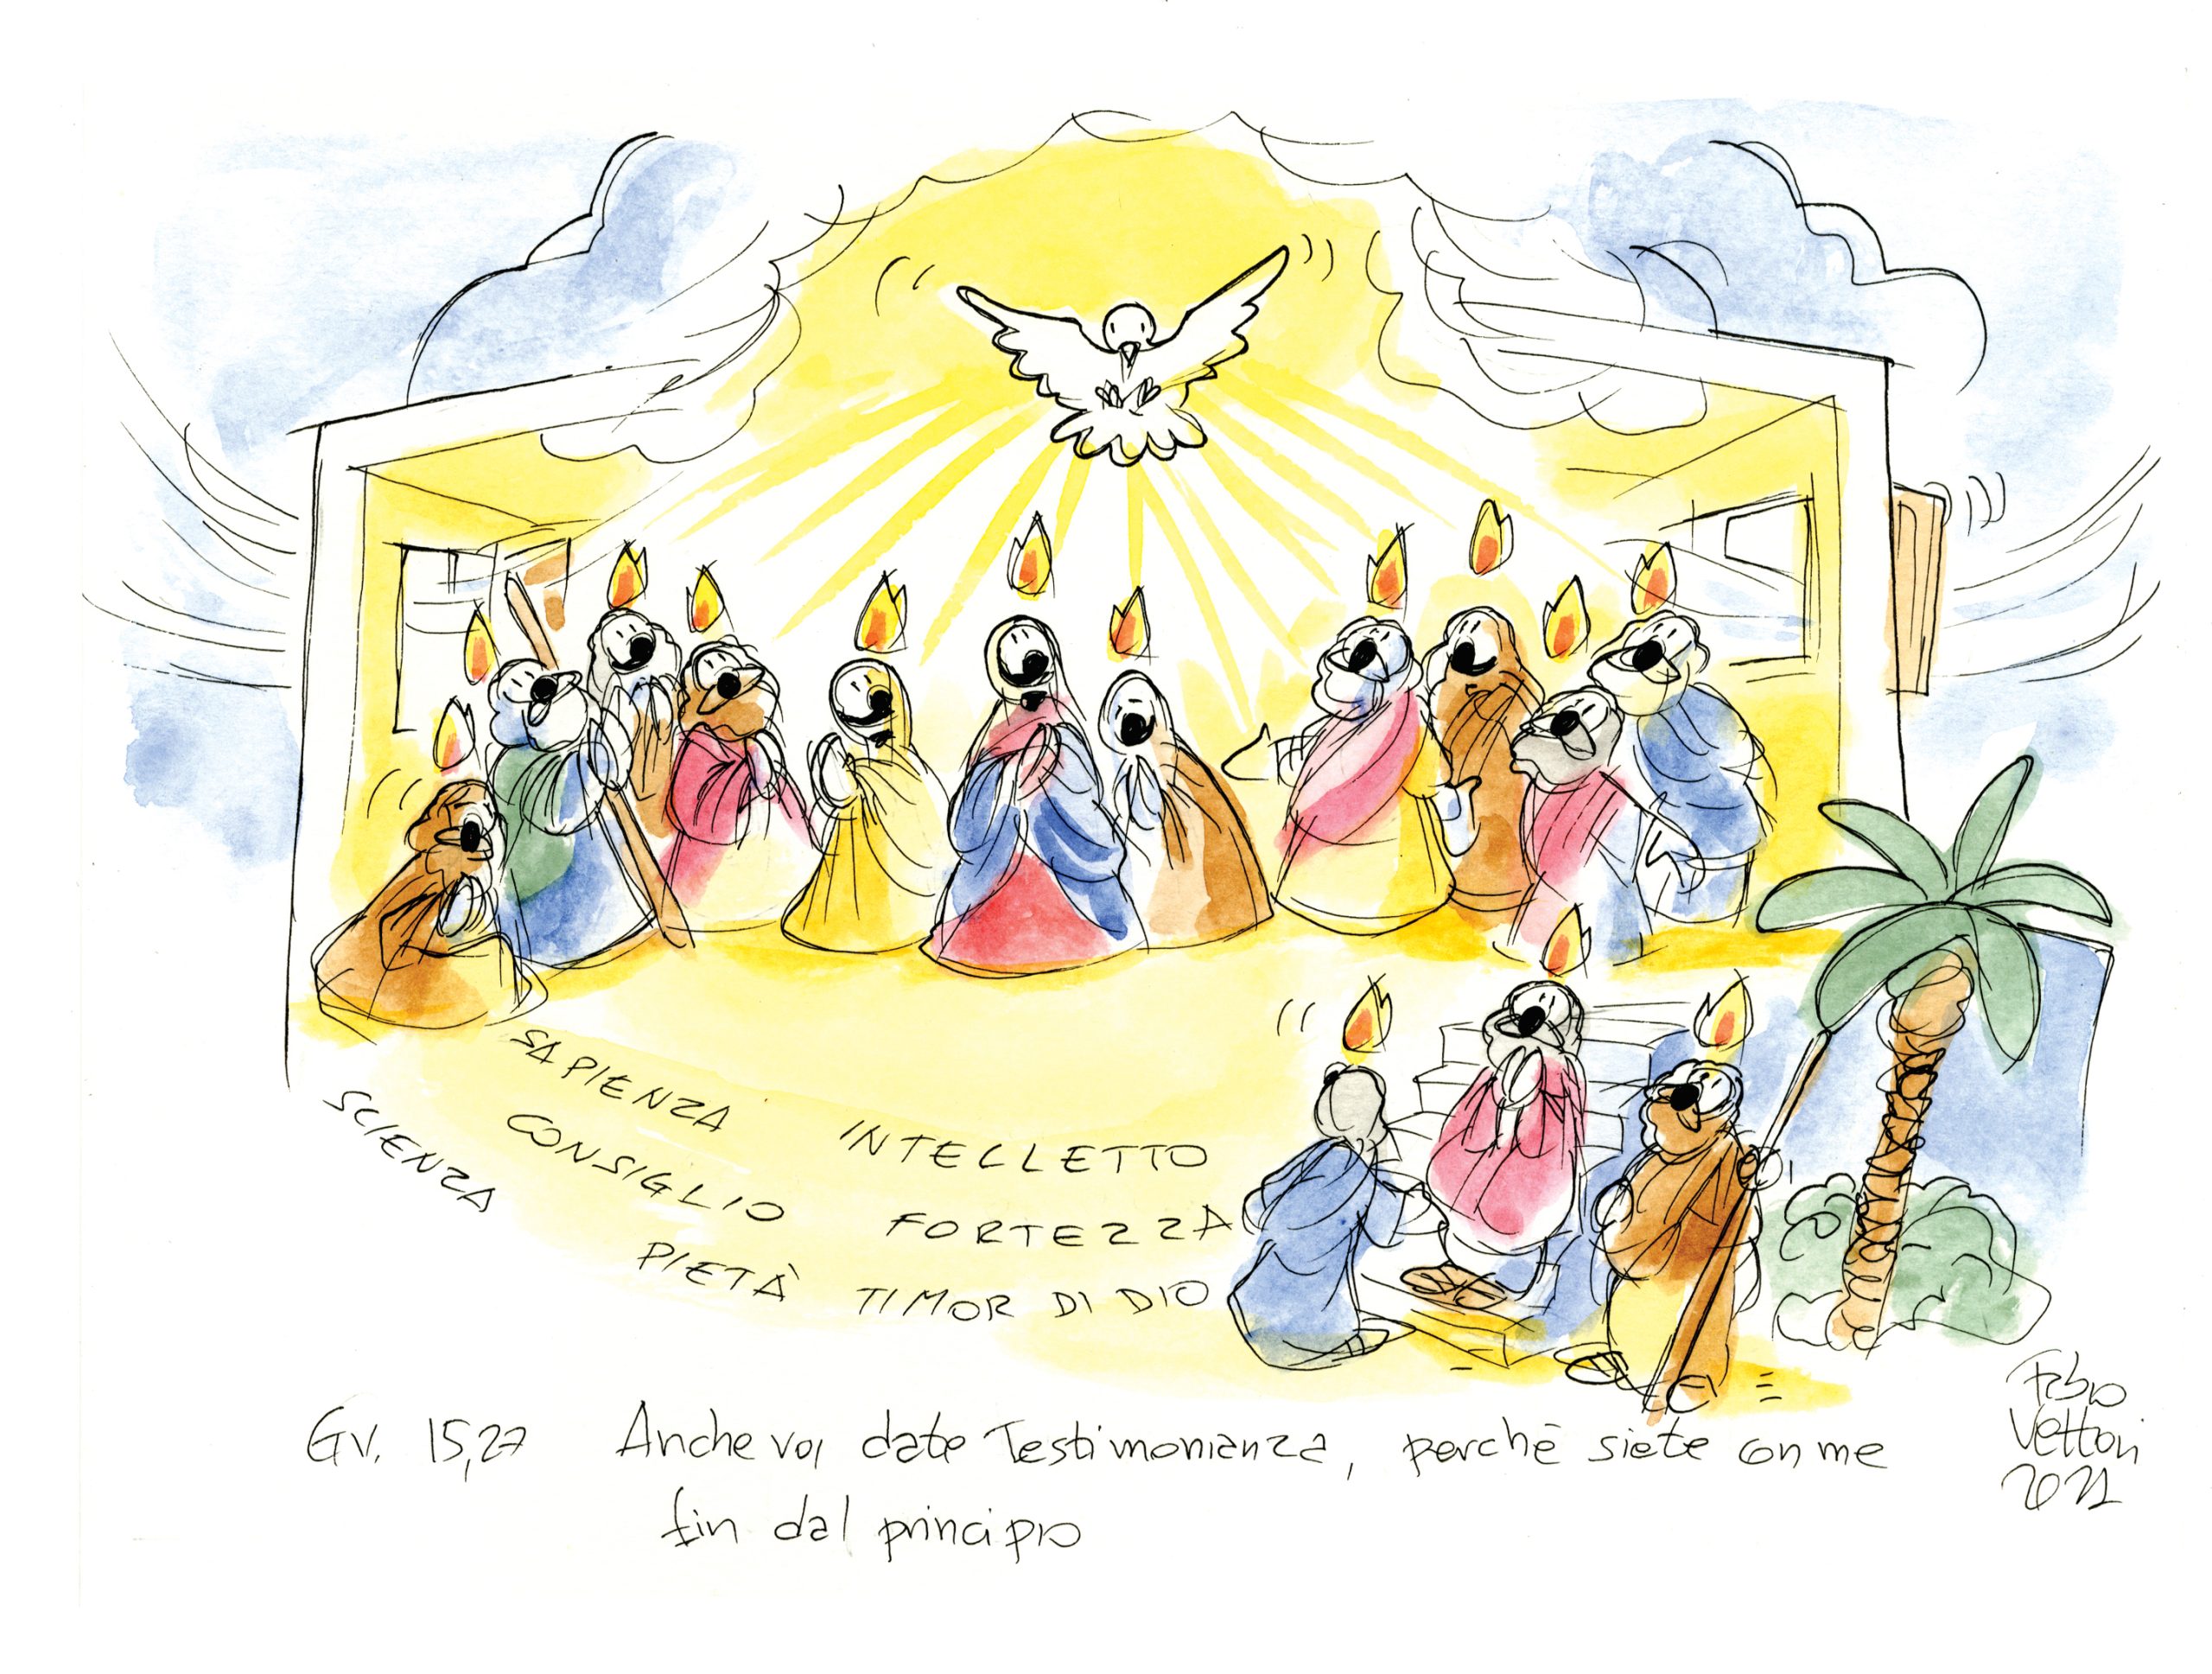 SAPIENZA
INTELLETTO
CONSIGLIO
FORTEZZA
SCIENZA
PIETÀ
TIMOR DI DIO
Gv. 15,27 Anche voi date Testimonianza, perchè siete con me
fin dal principio
Fabio
Vettori
2021